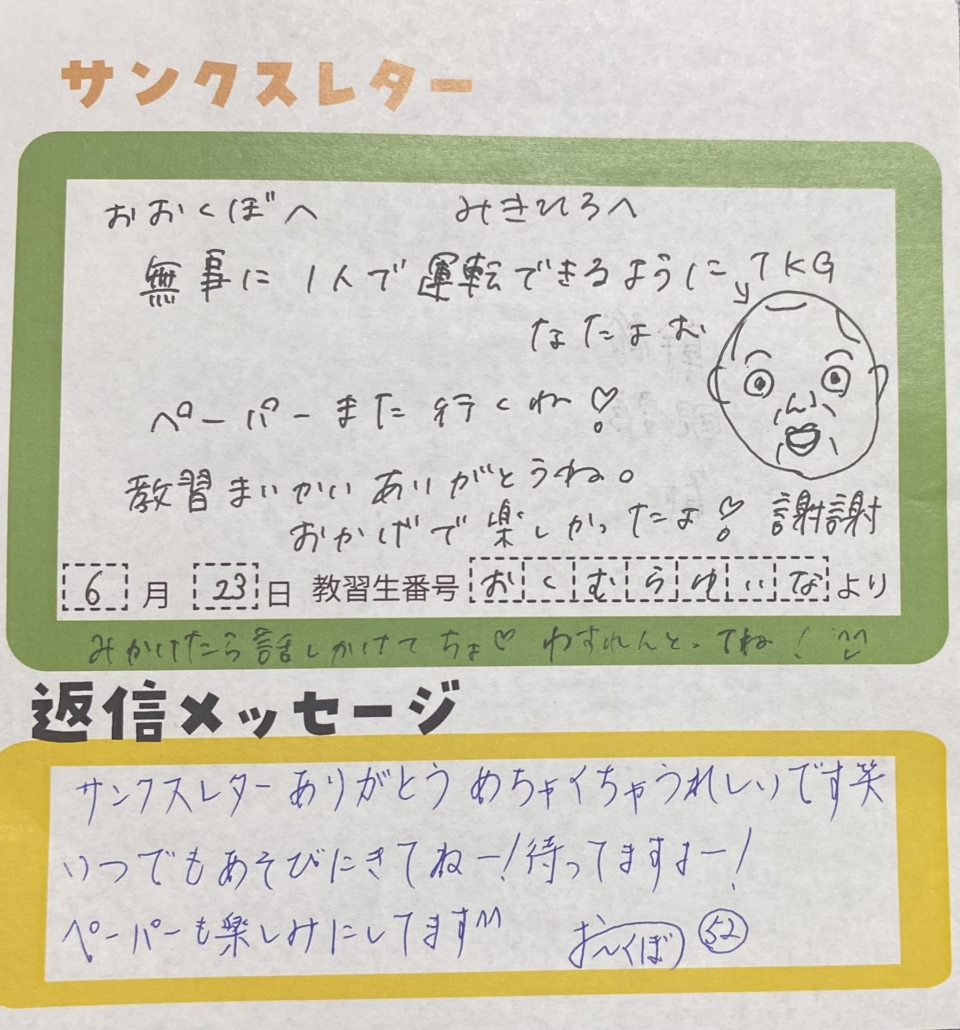 サンクスレター
おおくぼへ みきひろへ
無事に1人で運転できるように TKG
なたよお
ペーパーまた行くね♡!
教習まいかいありがとうね。
おかげで楽しかったよ♡! 謝謝
6月 23日 教習生番号 おくむらゆいなより
みかけたら話しかけてちょ♡ わすれんとってね!
返信メッセージ
サンクスレターありがとう めちゃくちゃうれしいです笑
いつでもあそびにきてねー!待ってますよー!
ペーパーも楽しみにしてます^^ おおくぼ 52